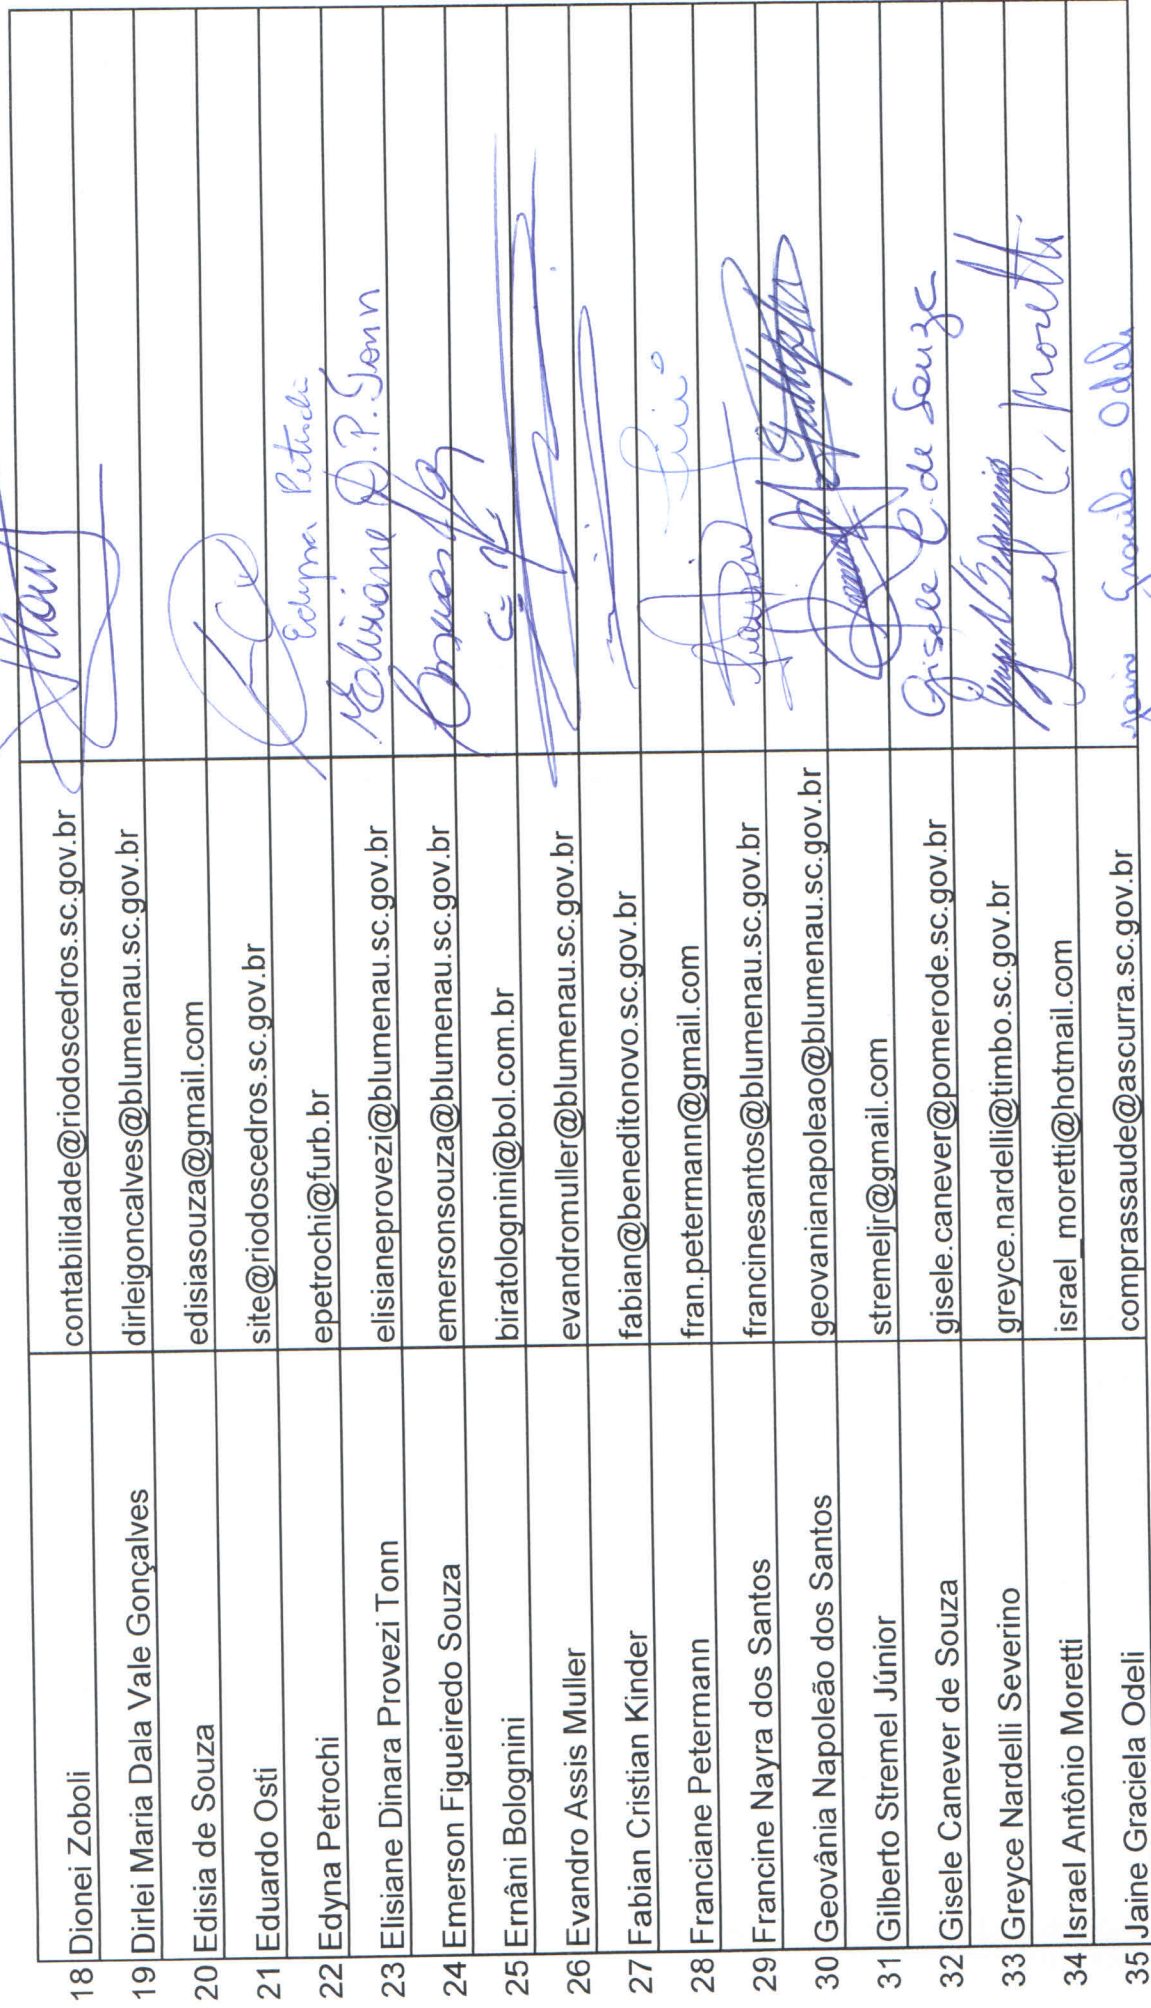 18 Dionei Zoboli contabilidade@riodoscedros.sc.gov.br
19 Dirlei Maria Dala Vale Gonçalves dirleigoncalves@blumenau.sc.gov.br
20 Edisia de Souza edisiasouza@gmail.com
21 Eduardo Osti site@riodoscedros.sc.gov.br
22 Edyna Petrochi epetrochi@furb.br Edyna Petrochi
23 Elisiane Dinara Provezi Tonn elisianeprovezi@blumenau.sc.gov.br Elisiane D.P. Tonn
24 Emerson Figueiredo Souza emersonsouza@blumenau.sc.gov.br
25 Ernâni Bolognini biratolognini@bol.com.br
26 Evandro Assis Muller evandromuller@blumenau.sc.gov.br
27 Fabian Cristian Kinder fabian@beneditonovo.sc.gov.br
28 Franciane Petermann fran.petermann@gmail.com
29 Francine Nayra dos Santos francinesantos@blumenau.sc.gov.br
30 Geovânia Napoleão dos Santos geovanianapoleao@blumenau.sc.gov.br
31 Gilberto Stremel Júnior stremeljr@gmail.com
32 Gisele Canever de Souza gisele.canever@pomerode.sc.gov.br Gisele C. de Souza
33 Greyce Nardelli Severino greyce.nardelli@timbo.sc.gov.br
34 Israel Antônio Moretti israel_moretti@hotmail.com Moretti
35 Jaine Graciela Odeli comprassaude@ascurra.sc.gov.br Jaine Graciela Odeli